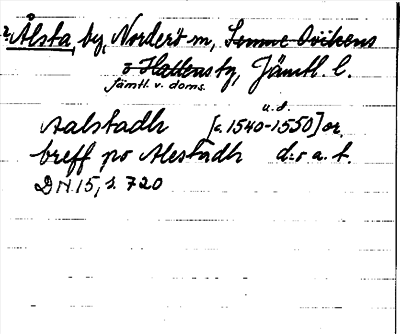 ? Ålsta, by, Norderö sn, Sunne Ovikens
o Hallens ty, Jämtl. l.
Jämtl. v. doms.
u.d.
Aalstadh [c. 1540-1550] or.
breff po Alestadh ds a. t.
DN 15, s. 720